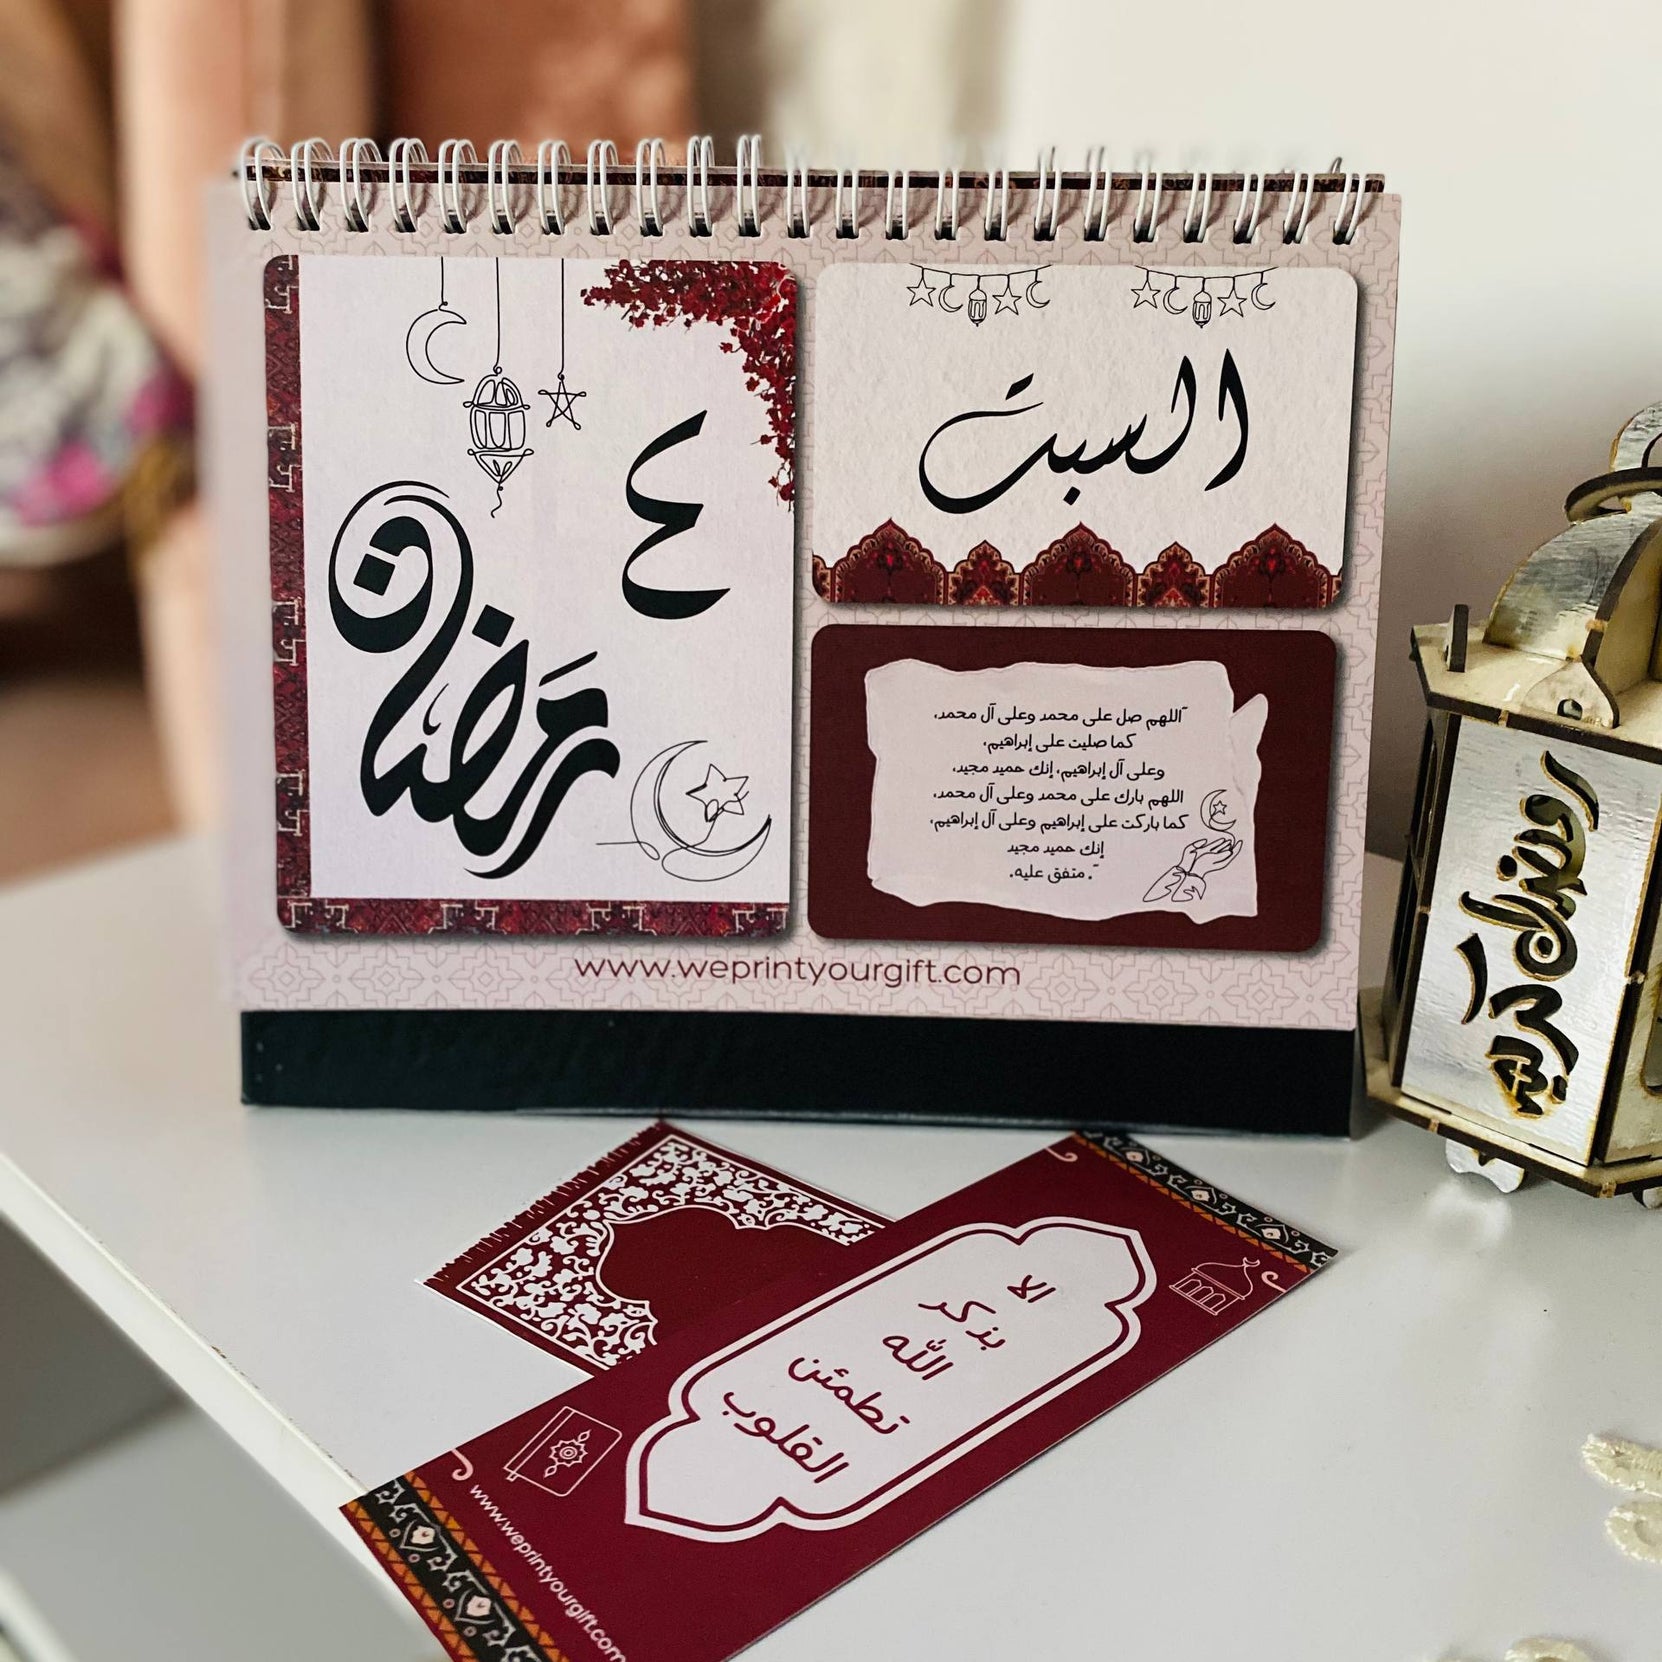 ٤
رمضان
السبت
"اللهم صل على محمد وعلى آل محمد،
كما صليت على إبراهيم،
وعلى آل إبراهيم، إنك حميد مجيد،
اللهم بارك على محمد وعلى آل محمد،
كما باركت على إبراهيم وعلى آل إبراهيم،
إنك حميد مجيد
". متفق عليه.
www.weprintyourgift.com
رمضان كريم
الا
بذكر
الله
تطمئن
القلوب
www.weprintyourgift.com